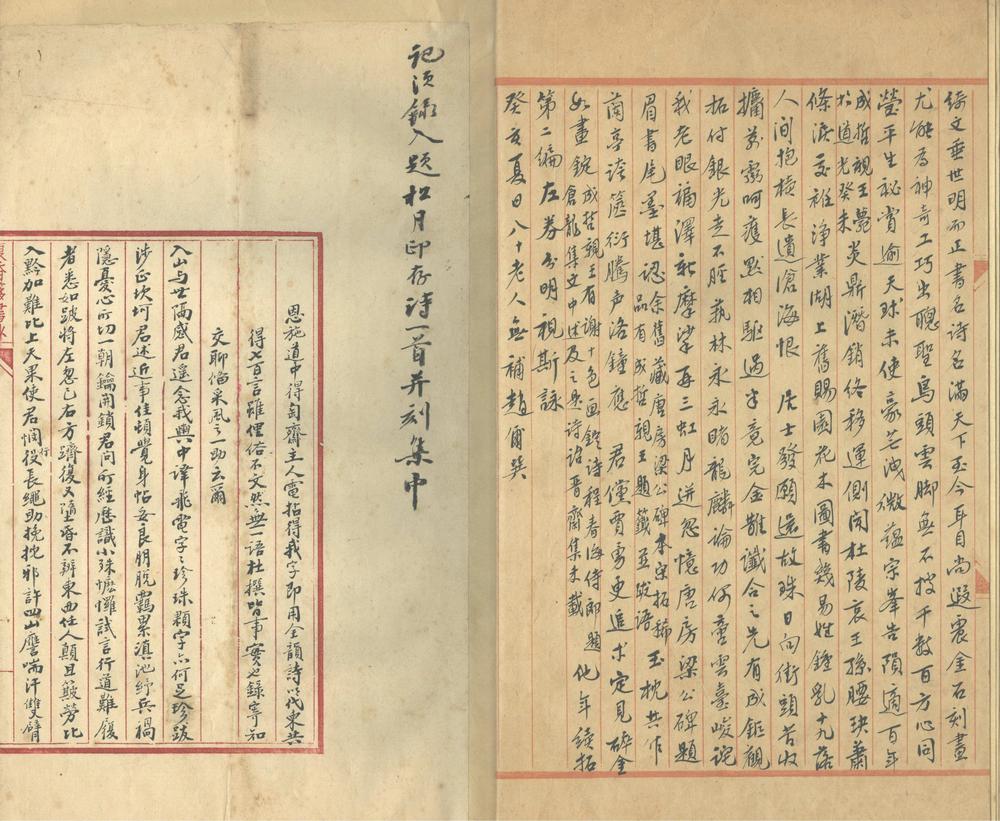 綺文垂世明而正書名詩名滿天下至今耳目尚遐震金石刻畫
尤能為神奇工巧出聰聖鳥頭雲脚無不披千數百方心同
瑩平生秘賞逾天球未使豪芒洩微蘊宗峯告隕適百年
成哲親王薨
於道光癸未
炎鼎潛銷終移運側聞杜陵哀王孫腰玦蕭
條淚交袵淨業湖上舊賜園花木圖書幾易姓鍾乳十九落
人間抱椟長遺滄海恨 居士發願還故珠日向街頭苦收
攟萬霧呵護默相驅過半竟完金雝讖合之先有成鉅觀
拓付銀光走不脛藝林永永睹龍麟論功何啻雲臺峻詫
我老眼福澤新摩挲再三虹月迸忽憶唐房梁公碑題
眉書尾墨堪認
余舊藏唐房梁公碑本宋拓稀
品有成哲親王題籤並跋語
玉枕共作
蘭亭誇簉衍騰声洛鐘應 君僅賈勇更追求定見碎金
如畫錠
成哲親王有謝十色画錠詩程春海侍郎題
倉龍集文中述及之是詩詒晉齋集未載
他年續拓
第二編左券分明視斯詠
癸亥夏日八十老人無補趙爾巽
記須錄入題松月印存詩一首并刻集中
恩施道中得匋齋主人電拈得我字即用全韻詩以代東共
得七百言雖俚俗不文然無一語杜撰皆事實也錄寄知
交聊備采風之一助云爾
入山与世隔感君遥念我興中譯飛電字之珍珠顆字亦何足珍跋
涉正坎坷君述近事佳頓覺身帖妥良朋脫羈累滇池紓兵禍
隱憂心所切一朝鑰開鎖君問所經歷識小殊懡㦬試言行道難履
者悉如跛將左忽已右方躋復又墮昏不辨東西任人顛且簸勞比
入黔加難比上天果使君憫行役長繩助挽拕邪許四山譍喘汗雙臂